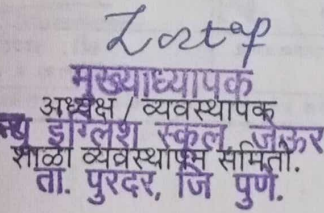 मुख्याध्यापक
अध्यक्ष / व्यवस्थापक
न्यु इंग्लिश स्कुल, जेऊर
शाळा व्यवस्थापन समिती.
ता. पुरंदर, जि पुणे.